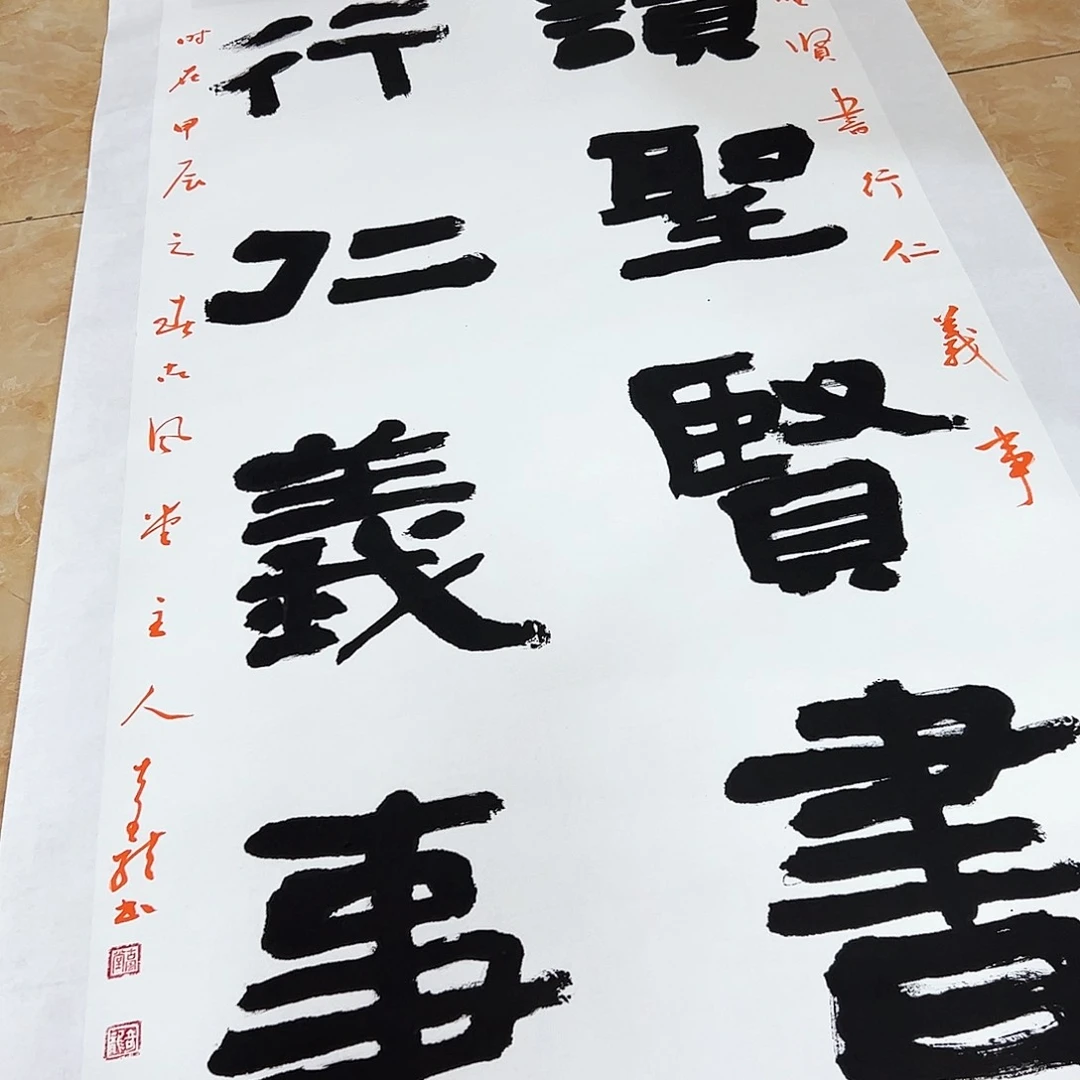 賢書行仁義事
讀聖賢書
行仁義事
時在甲辰之春古風堂主人
書